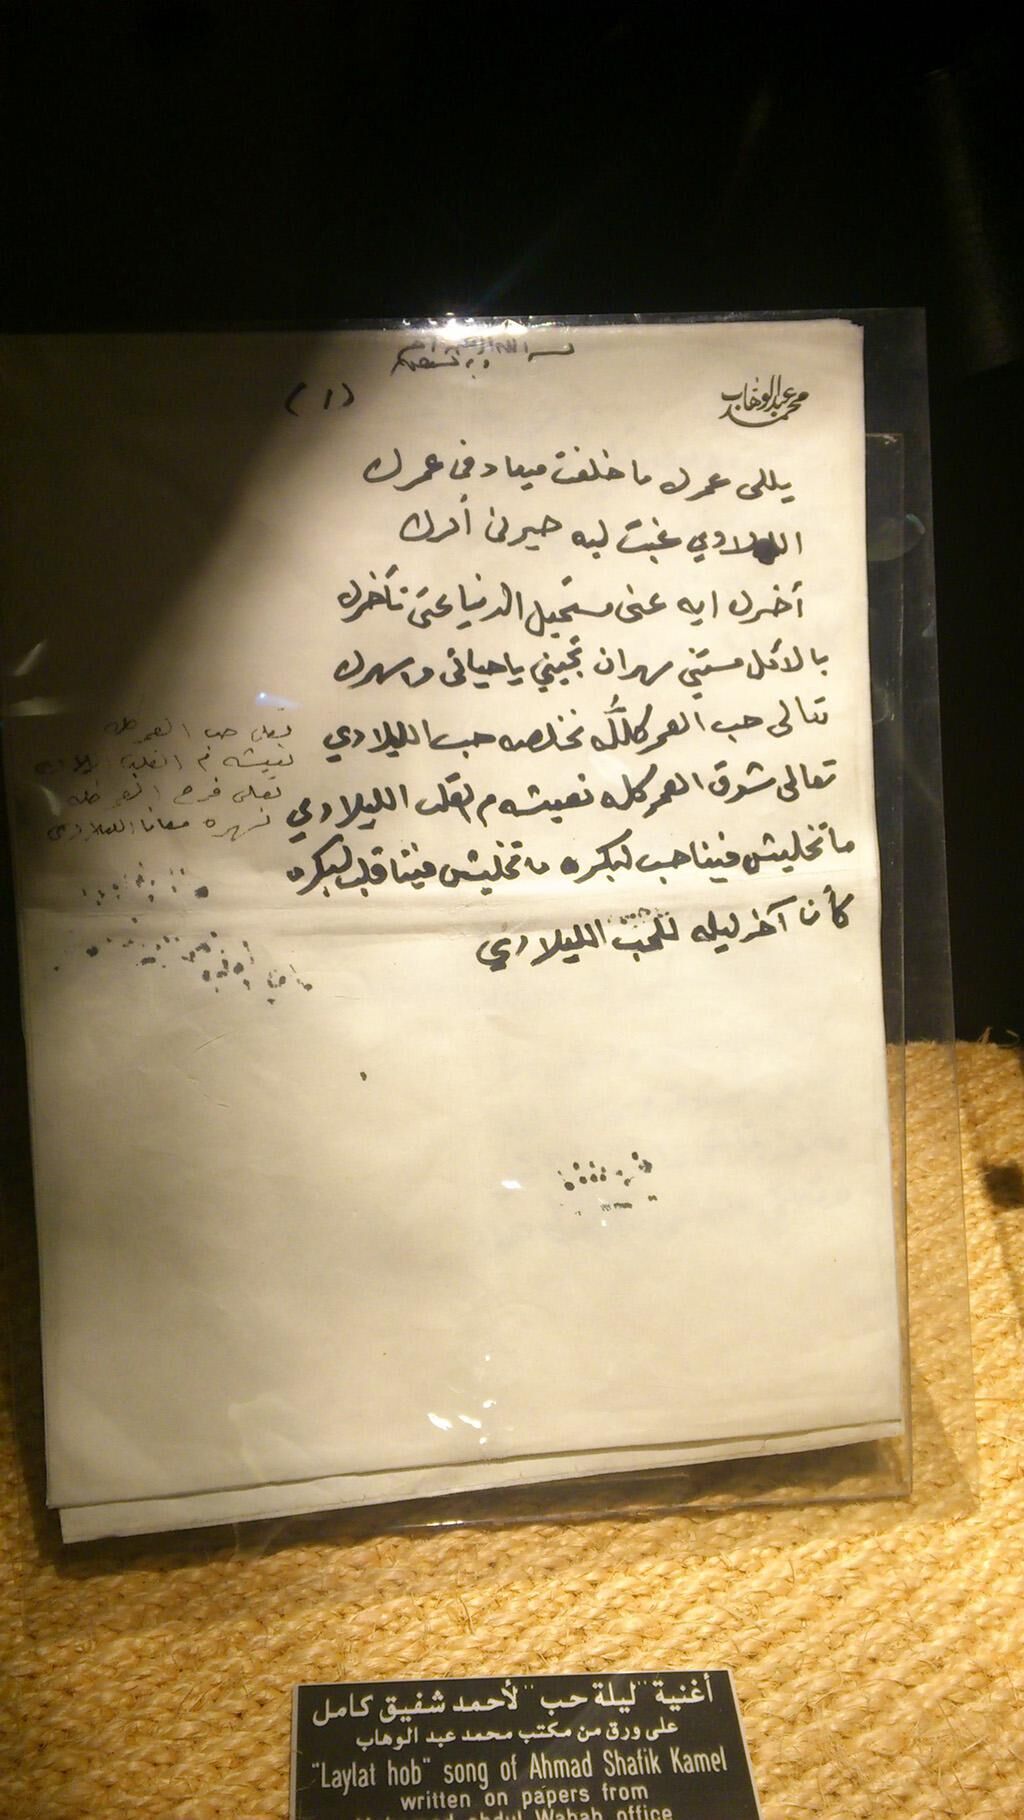 (١)
محمد عبد الوهاب
يللى عمرك ما خلفت ميعاد فى عمرك
الليلادي غبت ليه حيرنى أمرك
أخرك ايه عنى مستحيل الدنيا عنى تأخرك
بالأمل مستني سهران تجيني يا حياتى واسهرك
تعالى حب العمر كله نخلصه حب الليلادي
تعالى شوق العمر كله نعيشه م القلب الليلادي
ما تخليش فينا حب لبكره ما تخليش فينا قلب لبكره
كأن آخر ليله للحب الليلادي
تعالى حب العمر كله
نعيشه م القلب الليلادي
تعالى فرح العمر كله
نسهره معانا الليلادي
أغنية "ليلة حب" لأحمد شفيق كامل
على ورق من مكتب محمد عبد الوهاب
"Laylat hob" song of Ahmad Shafik Kamel
written on papers from
abdul Wahab office